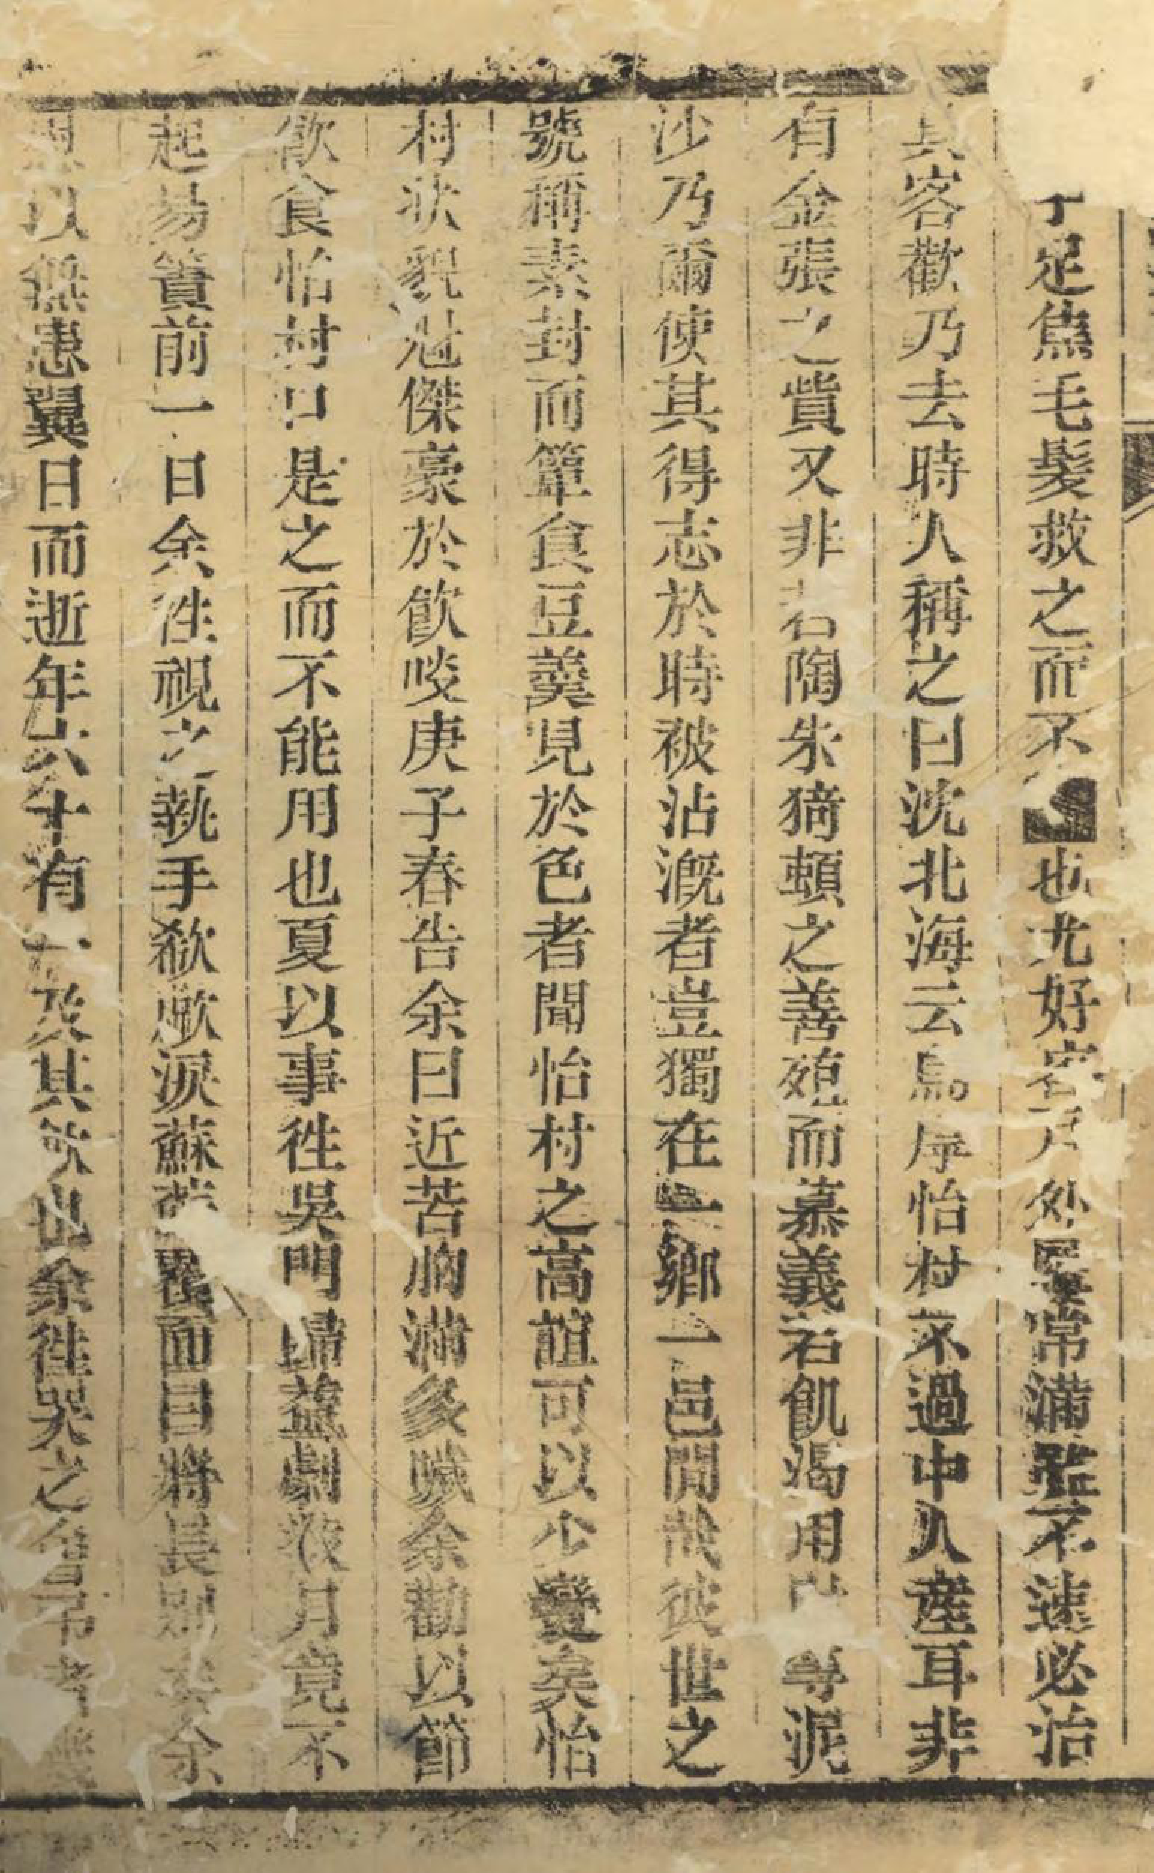 手足焦毛髮救之而不也尤好客戶外屨常滿至不速必治
其客歡乃去時人稱之曰沈北海云烏序怡村不過中人產耳非
有金張之貲又非若陶朱猗頓之善殖而慕義若飢渴用財等泥
沙乃爾使其得志於時被沾溉者豈獨在一鄉一邑間哉彼世之
號稱素封而簞食豆羹見於色者聞怡村之高誼可以少變矣怡
村狀貌魁傑豪於飲啖庚子春告余曰近苦胸滿多痰余勸以節
飲食怡村口是之而不能用也夏以事徃吳門歸益劇數月竟不
起易簀前一日余徃視之執手欷歔淚蘇蘇覆面曰將長別矣余
以無恚翼日而逝年六十有一及其歛也余徃哭之會弔者